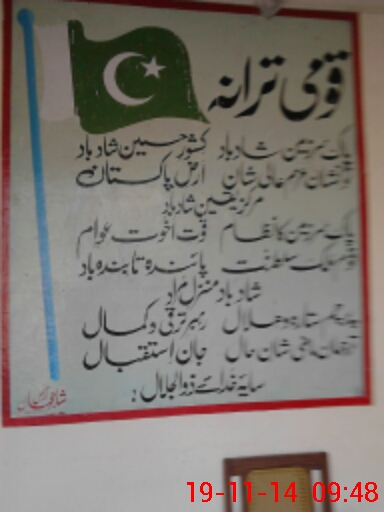 قومی ترانہ
پاک سرزمین شاد باد کشور حسین شاد باد
تو نشان عزم عالی شان ارض پاکستان
مرکز یقین شاد باد
پاک سرزمین کا نظام قوت اخوت عوام
قوم ملک سلطنت پائندہ تابندہ باد
شاد باد منزل مراد
پرچم ستارہ و ہلال رہبر ترقی و کمال
ترجمان ماضی شان حال جان استقبال
سایۂ خدائے ذوالجلال
19-11-14 09:48